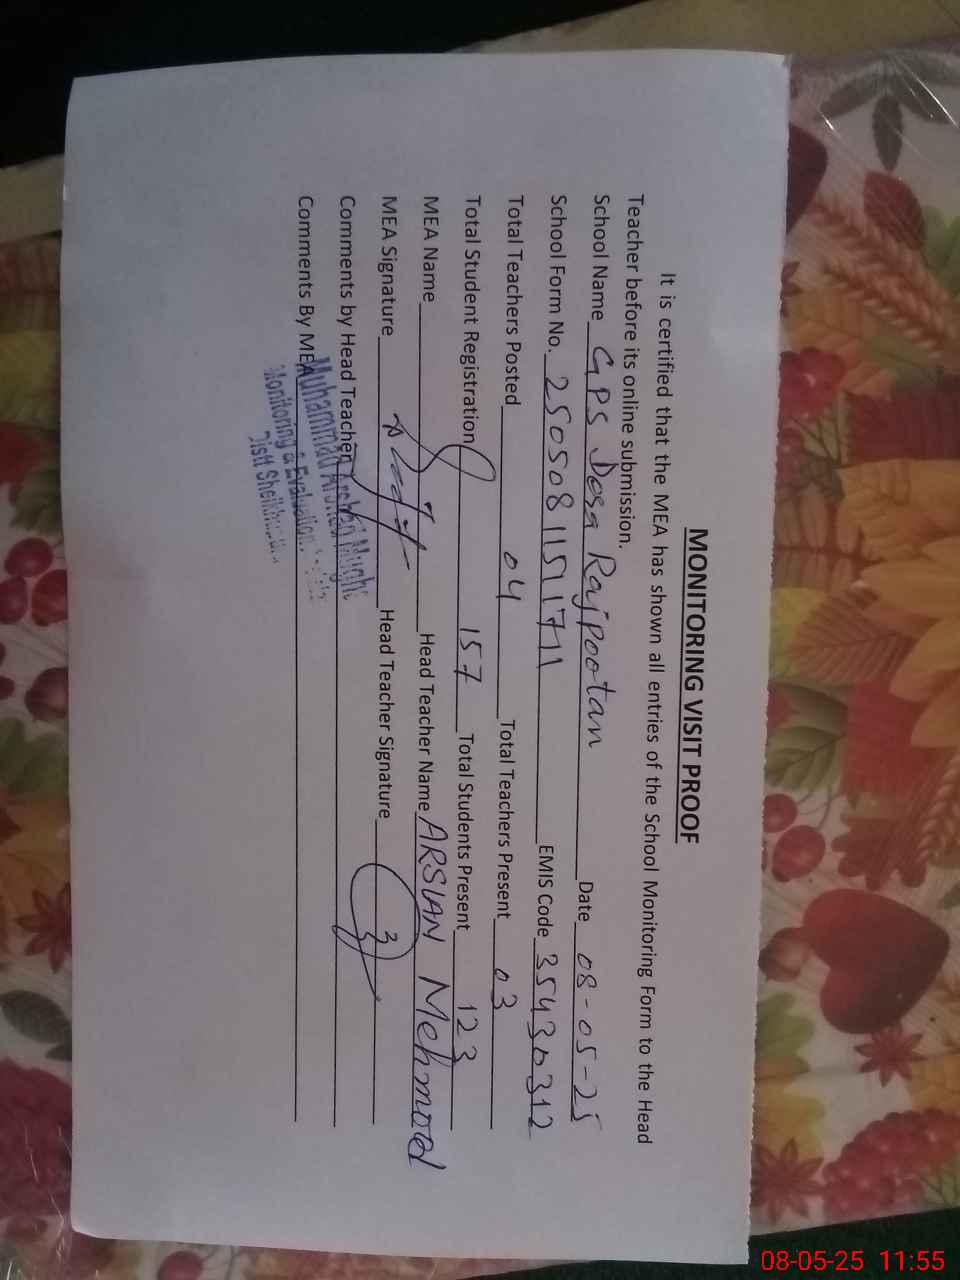 MONITORING VISIT PROOF
It is certified that the MEA has shown all entries of the School Monitoring Form to the Head
Teacher before its online submission.
School Name GPS Dosa Rajpootan Date 08-05-25
School Form No. 25050811511711 EMIS Code 35430312
Total Teachers Posted 04 Total Teachers Present 03
Total Student Registration 157 Total Students Present 123
MEA Name Head Teacher Name ARSLAN Mehmood
MEA Signature Head Teacher Signature
Comments by Head Teacher
Comments By MEA
Muhammad Arshad
Monitoring & Evaluation
Distt Sheikhupura
08-05-25 11:55